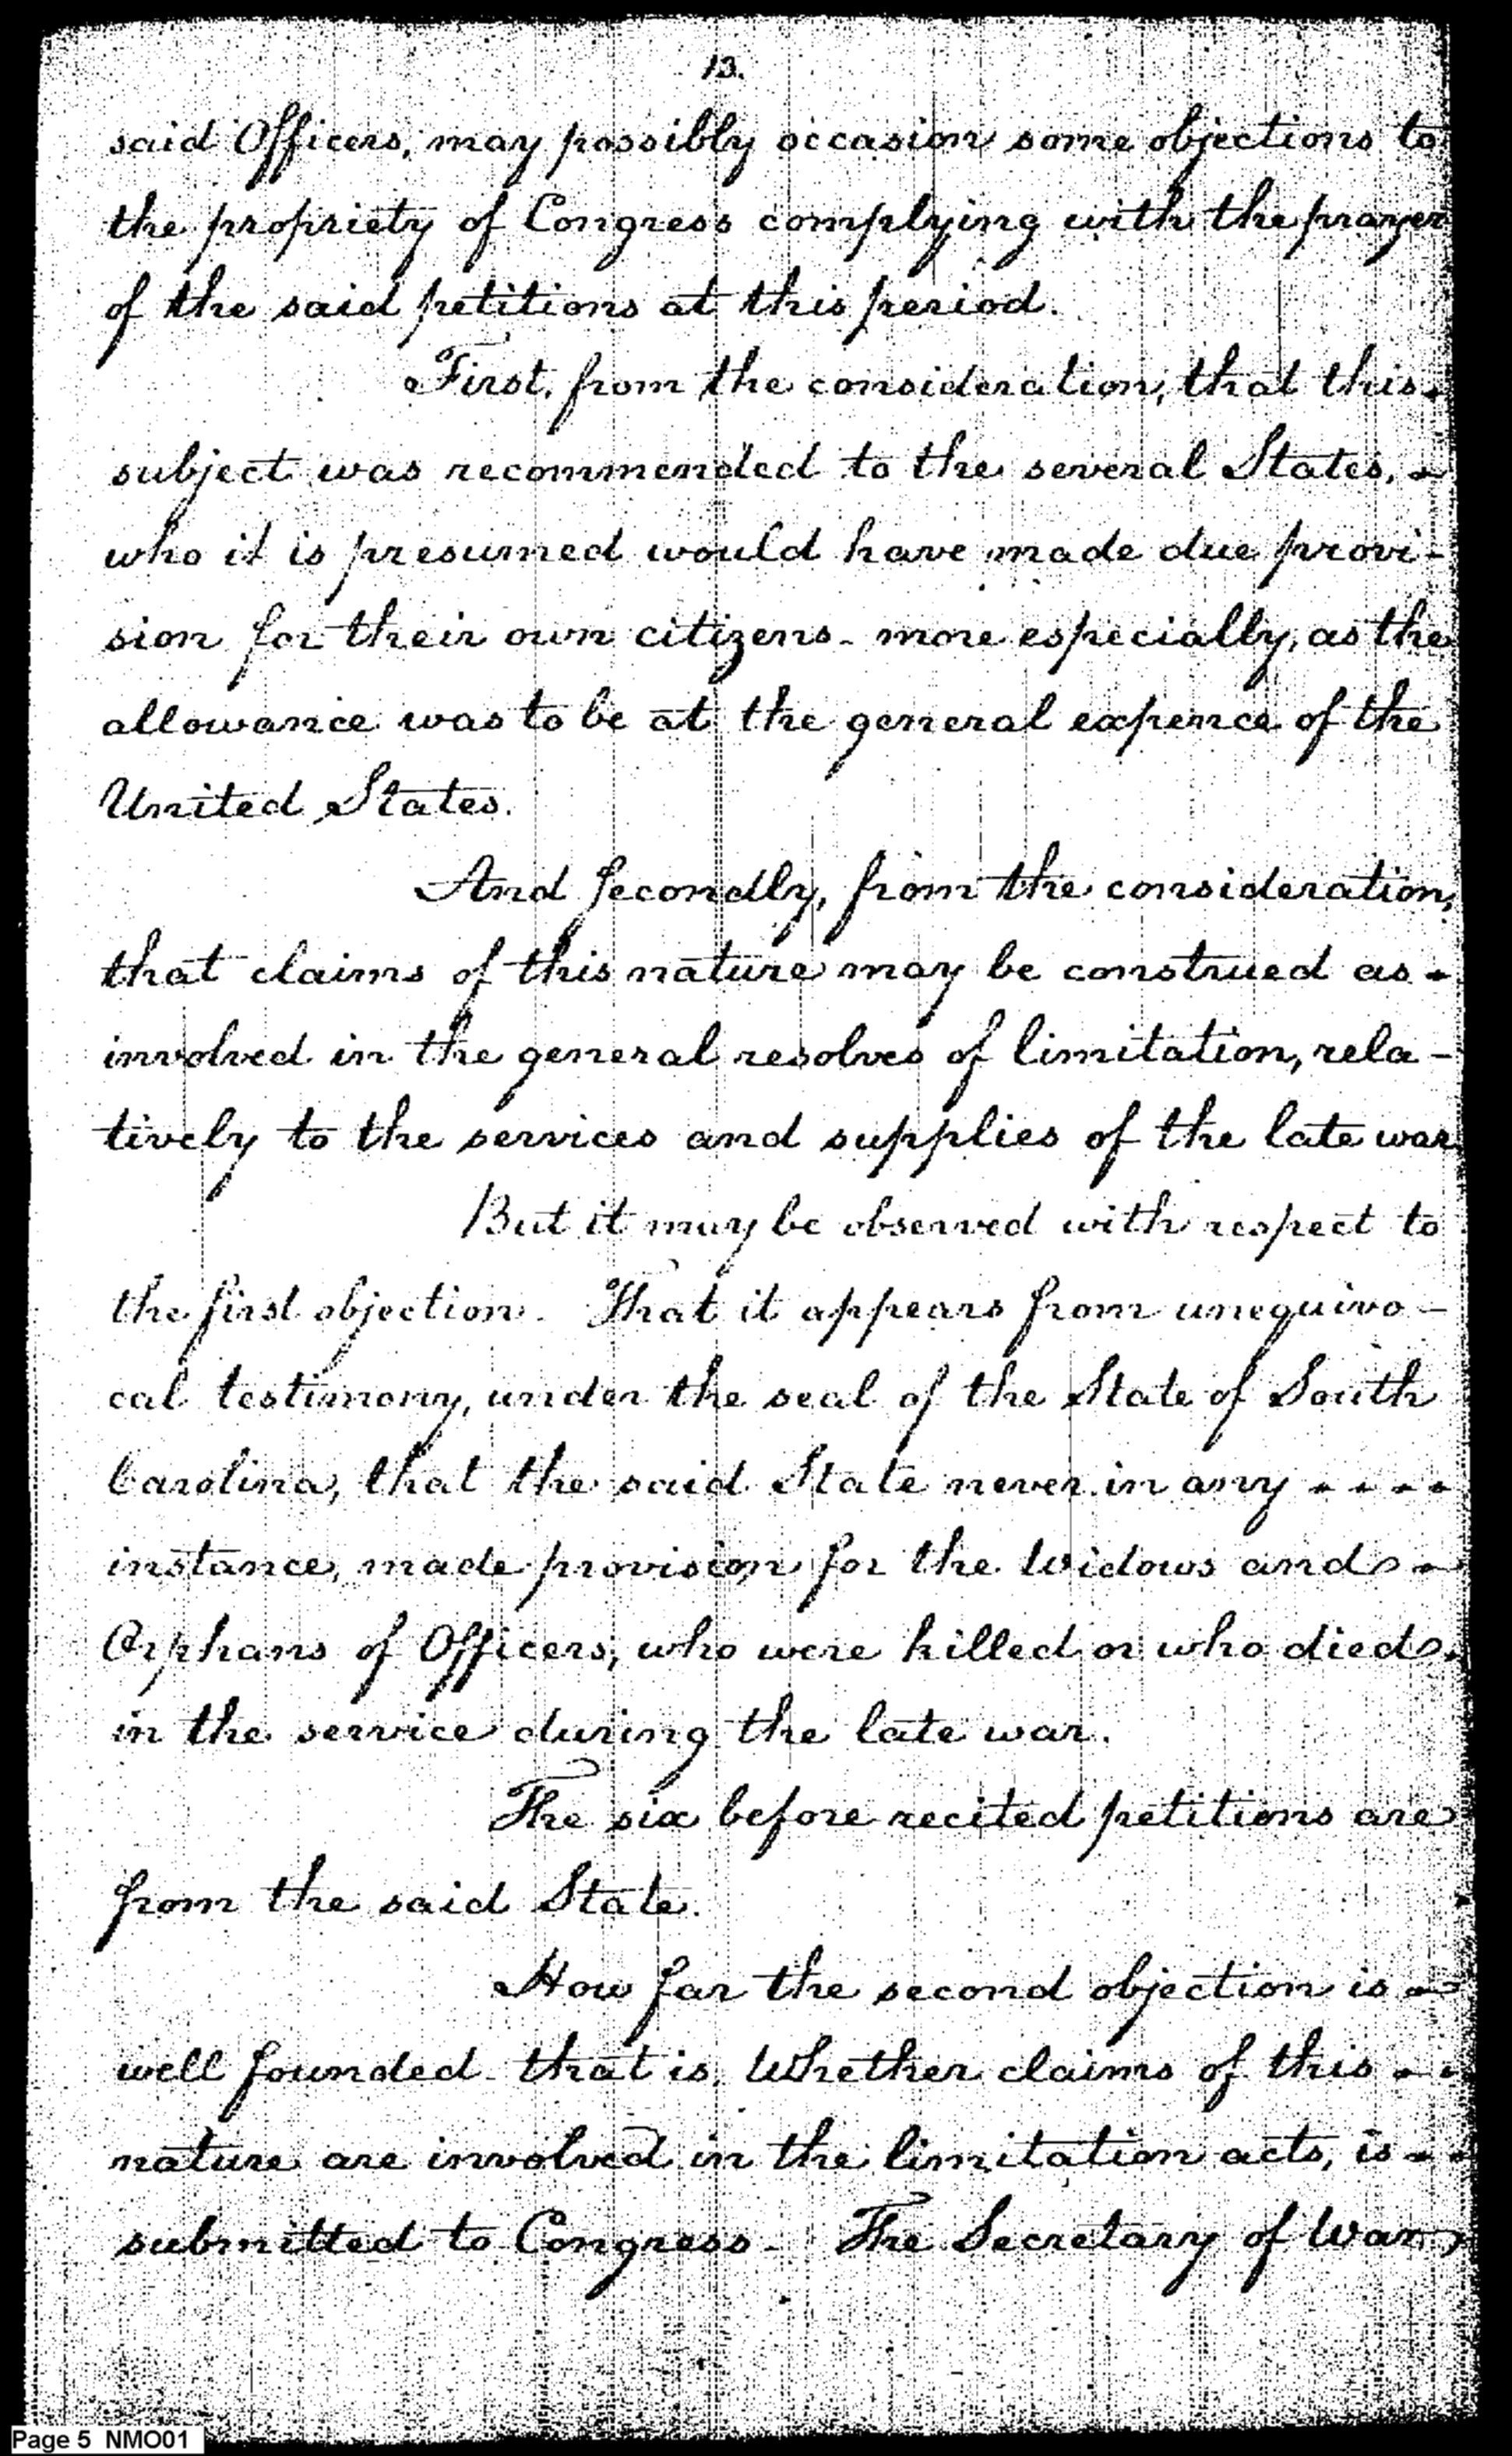 13.
said Officers, may possibly occasion some objections to
the propriety of Congress complying with the prayer
of the said petitions at this period.
First, from the consideration, that this
subject was recommended to the several States,
who it is presumed would have made due provi-
sion for their own citizens - more especially, as the
allowance was to be at the general expence of the
United States.
And secondly, from the consideration,
that claims of this nature may be construed as
involved in the general resolves of limitation, rela-
tively to the services and supplies of the late war
But it may be observed with respect to
the first objection. That it appears from unequivo-
cal testimony, under the seal of the State of South
Carolina, that the said State never in any
instance, made provision for the Widows and
Orphans of Officers, who were killed or who died
in the service during the late war.
The six before recited petitions are
from the said State.
How far the second objection is
well founded - that is, Whether claims of this
nature are involved in the limitation acts, is
submitted to Congress - The Secretary of War
Page 5 NMO01